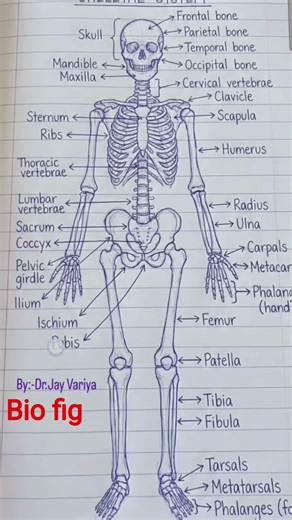 SKELETAL SYSTEM
Frontal bone
Skull
Parietal bone
Temporal bone
Mandible
Occipital bone
Maxilla
Cervical vertebrae
Clavicle
Sternum
Scapula
Ribs
Humerus
Thoracic
vertebrae
Lumbar
vertebrae
Radius
Sacrum
Ulna
Coccyx
Carpals
Pelvic
girdle
Metacar
Ilium
Phalan
(hand
Ischium
Femur
Pubis
Patella
By:-Dr.Jay Variya
Bio fig
Tibia
Fibula
Tarsals
Metatarsals
Phalanges (fo